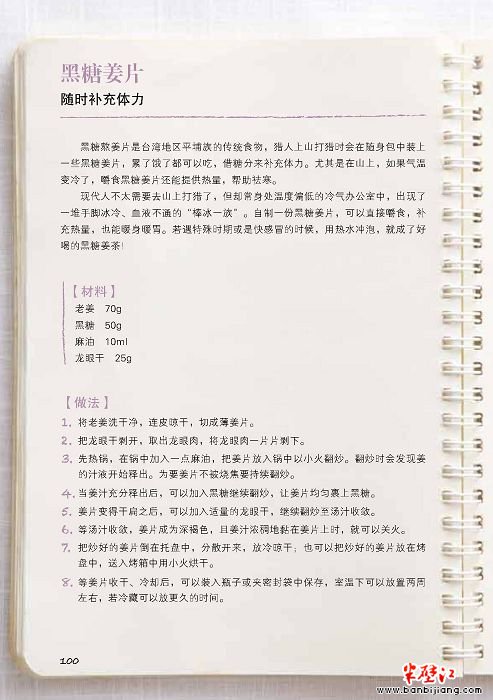 黑糖姜片
随时补充体力
黑糖熬姜片是台湾地区平埔族的传统食物，猎人上山打猎时会在随身包中装上
一些黑糖姜片，累了饿了都可以吃，借糖分来补充体力。尤其是在山上，如果气温
变冷了，嚼食黑糖姜片还能提供热量，帮助祛寒。
现代人不太需要去山上打猎了，但却常身处温度偏低的冷气办公室中，出现了
一堆手脚冰冷、血液不通的“棒冰一族”。自制一份黑糖姜片，可以直接嚼食，补
充热量，也能暖身暖胃。若遇特殊时期或是快感冒的时候，用热水冲泡，就成了好
喝的黑糖姜茶！
【材料】
老姜 70g
黑糖 50g
麻油 10ml
龙眼干 25g
【做法】
1. 将老姜洗干净，连皮晾干，切成薄姜片。
2. 把龙眼干剥开，取出龙眼肉，将龙眼肉一片片剥下。
3. 先热锅，在锅中加入一点麻油，把姜片放入锅中以小火翻炒。翻炒时会发现姜
的汁液开始释出。为要姜片不被烧焦要持续翻炒。
4. 当姜汁充分释出后，可以加入黑糖继续翻炒，让姜片均匀裹上黑糖。
5. 姜片变得干扁之后，可以加入适量的龙眼干，继续翻炒至汤汁收敛。
6. 等汤汁收敛，姜片成为深褐色，且姜汁浓稠地黏在姜片上时，就可以关火。
7. 把炒好的姜片倒在托盘中，分散开来，放冷晾干；也可以把炒好的姜片放在烤
盘中，送入烤箱中用小火烘干。
8. 等姜片收干、冷却后，可以装入瓶子或夹密封袋中保存，室温下可以放置两周
左右，若冷藏可以放更久的时间。
100
半壁江
www.banbijiang.com